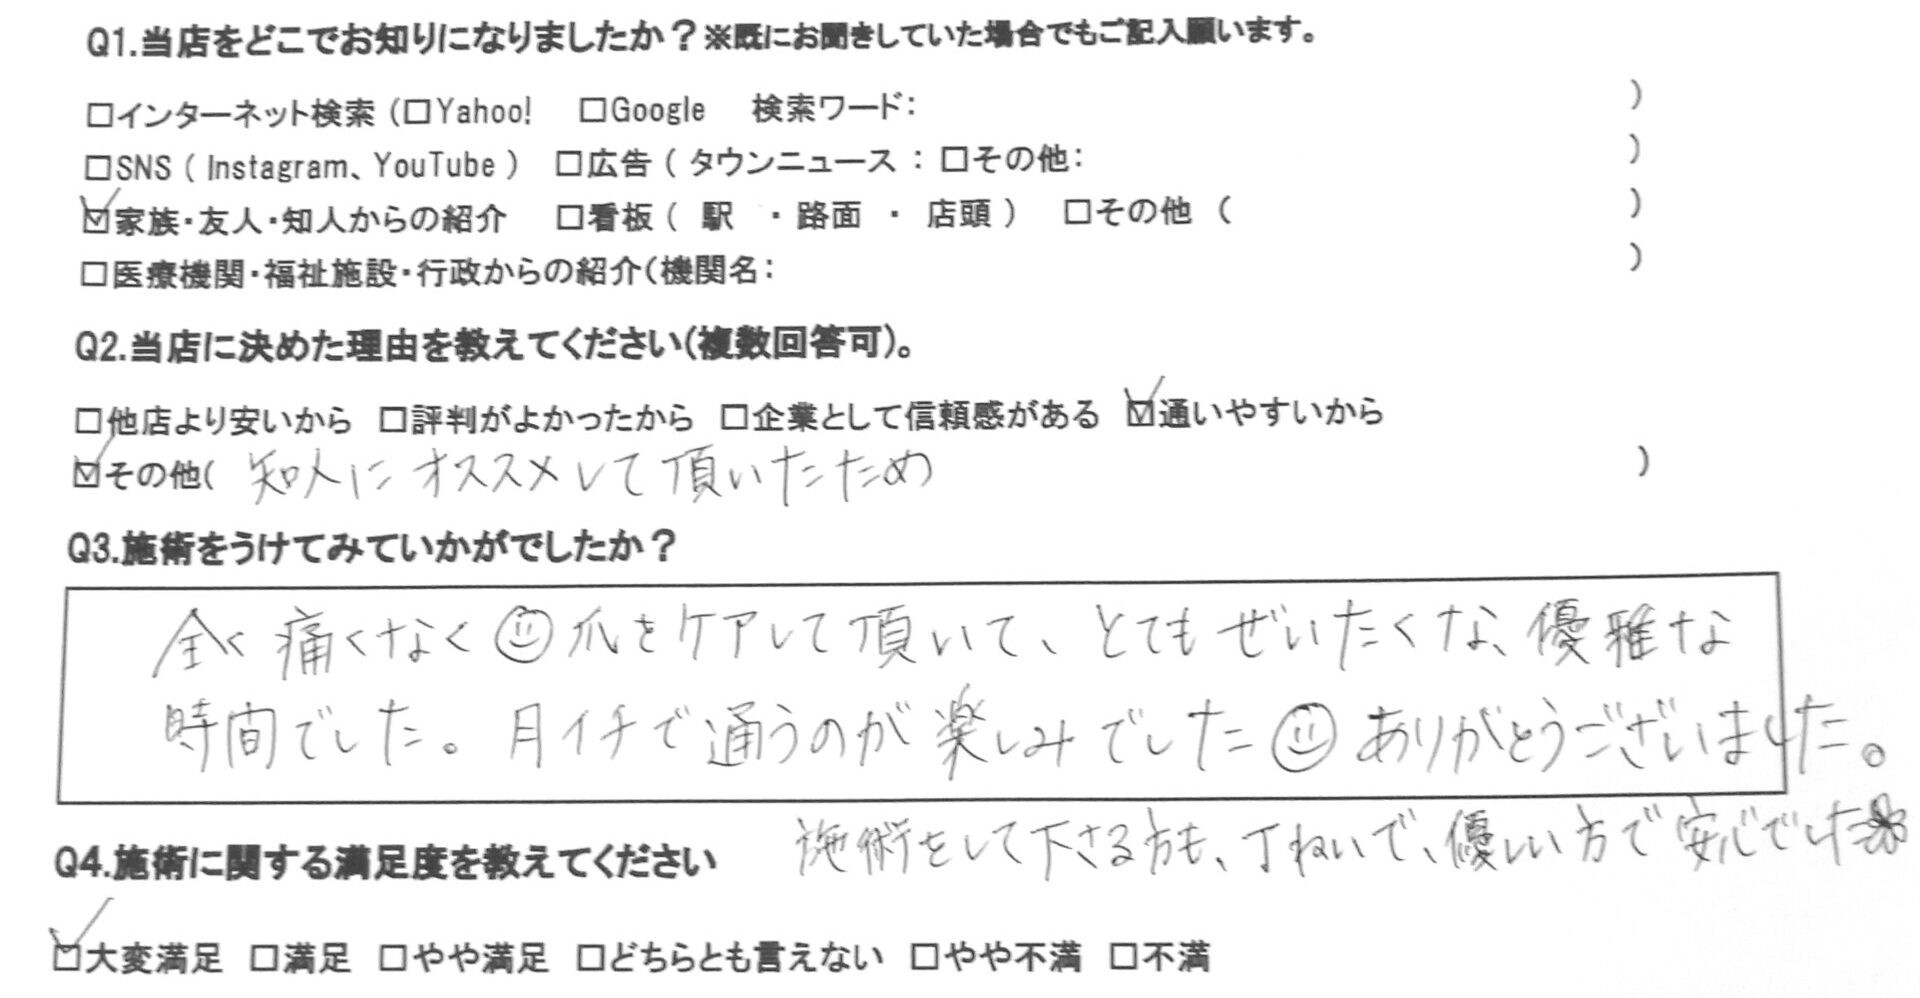 Q1.当店をどこでお知りになりましたか？※既にお聞きしていた場合でもご記入願います。
□インターネット検索（□Yahoo!　□Google　検索ワード：　）
□SNS（Instagram、YouTube）　□広告（タウンニュース：□その他：　）
☑家族・友人・知人からの紹介　□看板（駅　・路面　・　店頭）　□その他（　）
□医療機関・福祉施設・行政からの紹介（機関名：　）
Q2.当店に決めた理由を教えてください（複数回答可）。
□他店より安いから　□評判がよかったから　□企業として信頼感がある　☑通いやすいから
☑その他（知人にオススメして頂いたため　）
Q3.施術をうけてみていかがでしたか？
全く痛くなく☺爪をケアして頂いて、とてもぜいたくな、優雅な
時間でした。月イチで通うのが楽しみでした☺ありがとうございました。
施術をして下さる方も、丁ねいで、優しい方で安心でした
Q4.施術に関する満足度を教えてください
☑大変満足　□満足　□やや満足　□どちらとも言えない　□やや不満　□不満